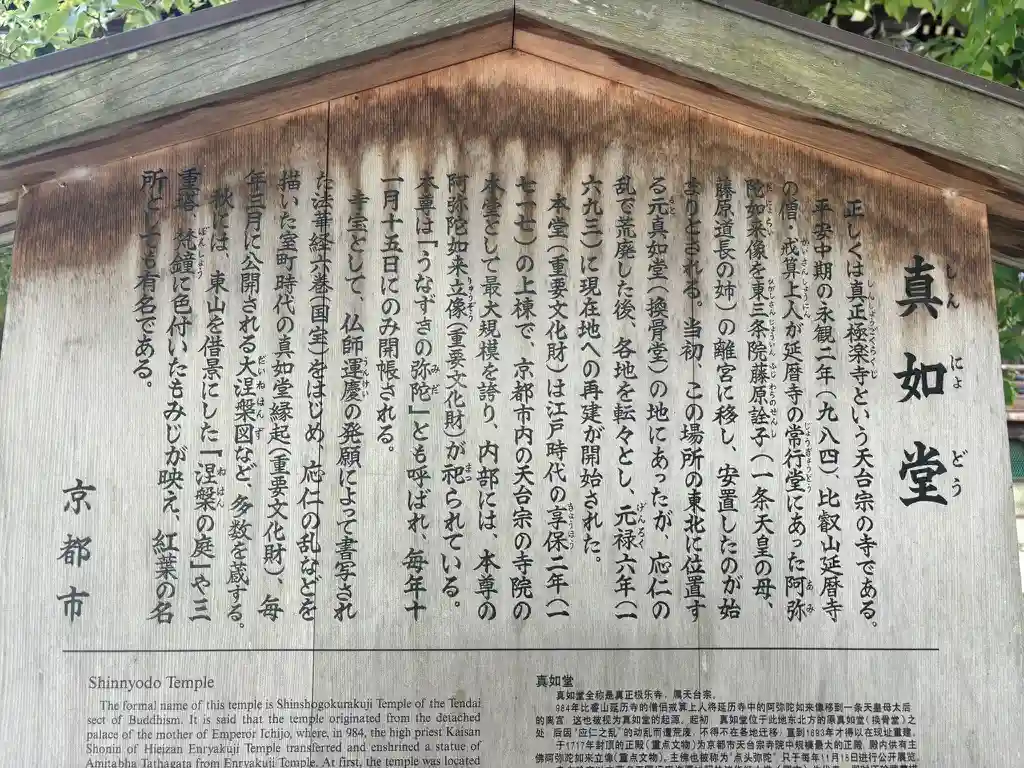 真如堂
しん にょ どう
正しくは真正極楽寺という天台宗の寺である。
平安中期の永観二年(九八四)、比叡山延暦寺
の僧・戒算上人が延暦寺の常行堂にあった阿弥
陀如来像を東三条院藤原詮子(一条天皇の母、
藤原道長の姉)の離宮に移し、安置したのが始
まりとされる。当初、この場所の東北に位置す
る元真如堂(換骨堂)の地にあったが、応仁の
乱で荒廃した後、各地を転々とし、元禄六年(一
六九三)に現在地への再建が開始された。
本堂(重要文化財)は江戸時代の享保二年(一
七一七)の上棟で、京都市内の天台宗の寺院の
本堂として最大規模を誇り、内部には、本尊の
阿弥陀如来立像(重要文化財)が祀られている。
本尊は「うなずきの弥陀」とも呼ばれ、毎年十
一月十五日にのみ開帳される。
寺宝として、仏師運慶の発願によって書写され
た法華経六巻(国宝)をはじめ、応仁の乱などを
描いた室町時代の真如堂縁起(重要文化財)、毎
年三月に公開される大涅槃図など、多数を蔵する。
秋には、東山を借景にした「涅槃の庭」や三
重塔、梵鐘に色付いたもみじが映え、紅葉の名
所としても有名である。
京都市
Shinnyodo Temple
The formal name of this temple is Shinshogokurakuji Temple of the Tendai
sect of Buddhism. It is said that the temple originated from the detached
palace of the mother of Emperor Ichijo, where, in 984, the high priest Kaisan
Shonin of Hieizan Enryakuji Temple transferred and enshrined a statue of
Amitabha Tathagata from Enryakuji Temple. At first, the temple was located
真如堂
真如堂全称是真正极乐寺，属天台宗。
984年比睿山延历寺的僧侣戒算上人将延历寺中的阿弥陀如来像移到一条天皇母太后
的离宫，这也被视为真如堂的起源。起初，真如堂位于此地东北方的原真如堂(换骨堂)之
处，后因“应仁之乱”的动乱而遭荒废，不得不在各地迁移，直到1693年才得以在现址重建。
于1717年封顶的正殿(重点文物)为京都市天台宗寺院中规模最大的正殿，殿内供有主
佛阿弥陀如来立像(重点文物)，主佛也被称为“点头弥陀”，只于每年11月15日进行公开展览。